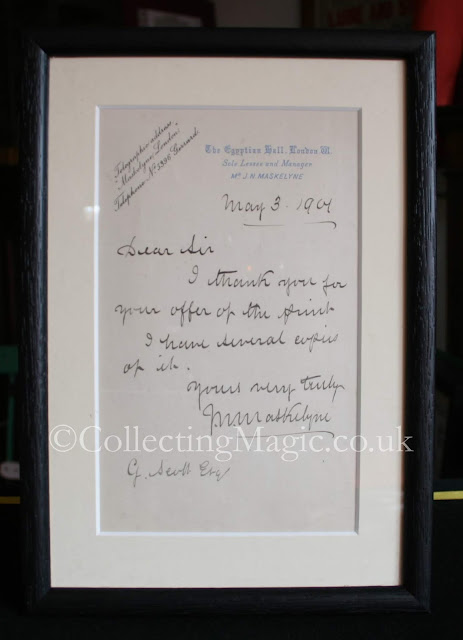 Telegraphic address,
"Maskelyne, London."
Telephone: No 5396 Gerrard.
The Egyptian Hall, London, W.
Sole Lessee and Manager
Mr J. N. MASKELYNE
May 3. 1901
Dear Sir
I thank you for
your offer of the print
I have several copies
of it.
Yours very truly
JNMaskelyne
©CollectingMagic.co.uk
G. Scott Esq